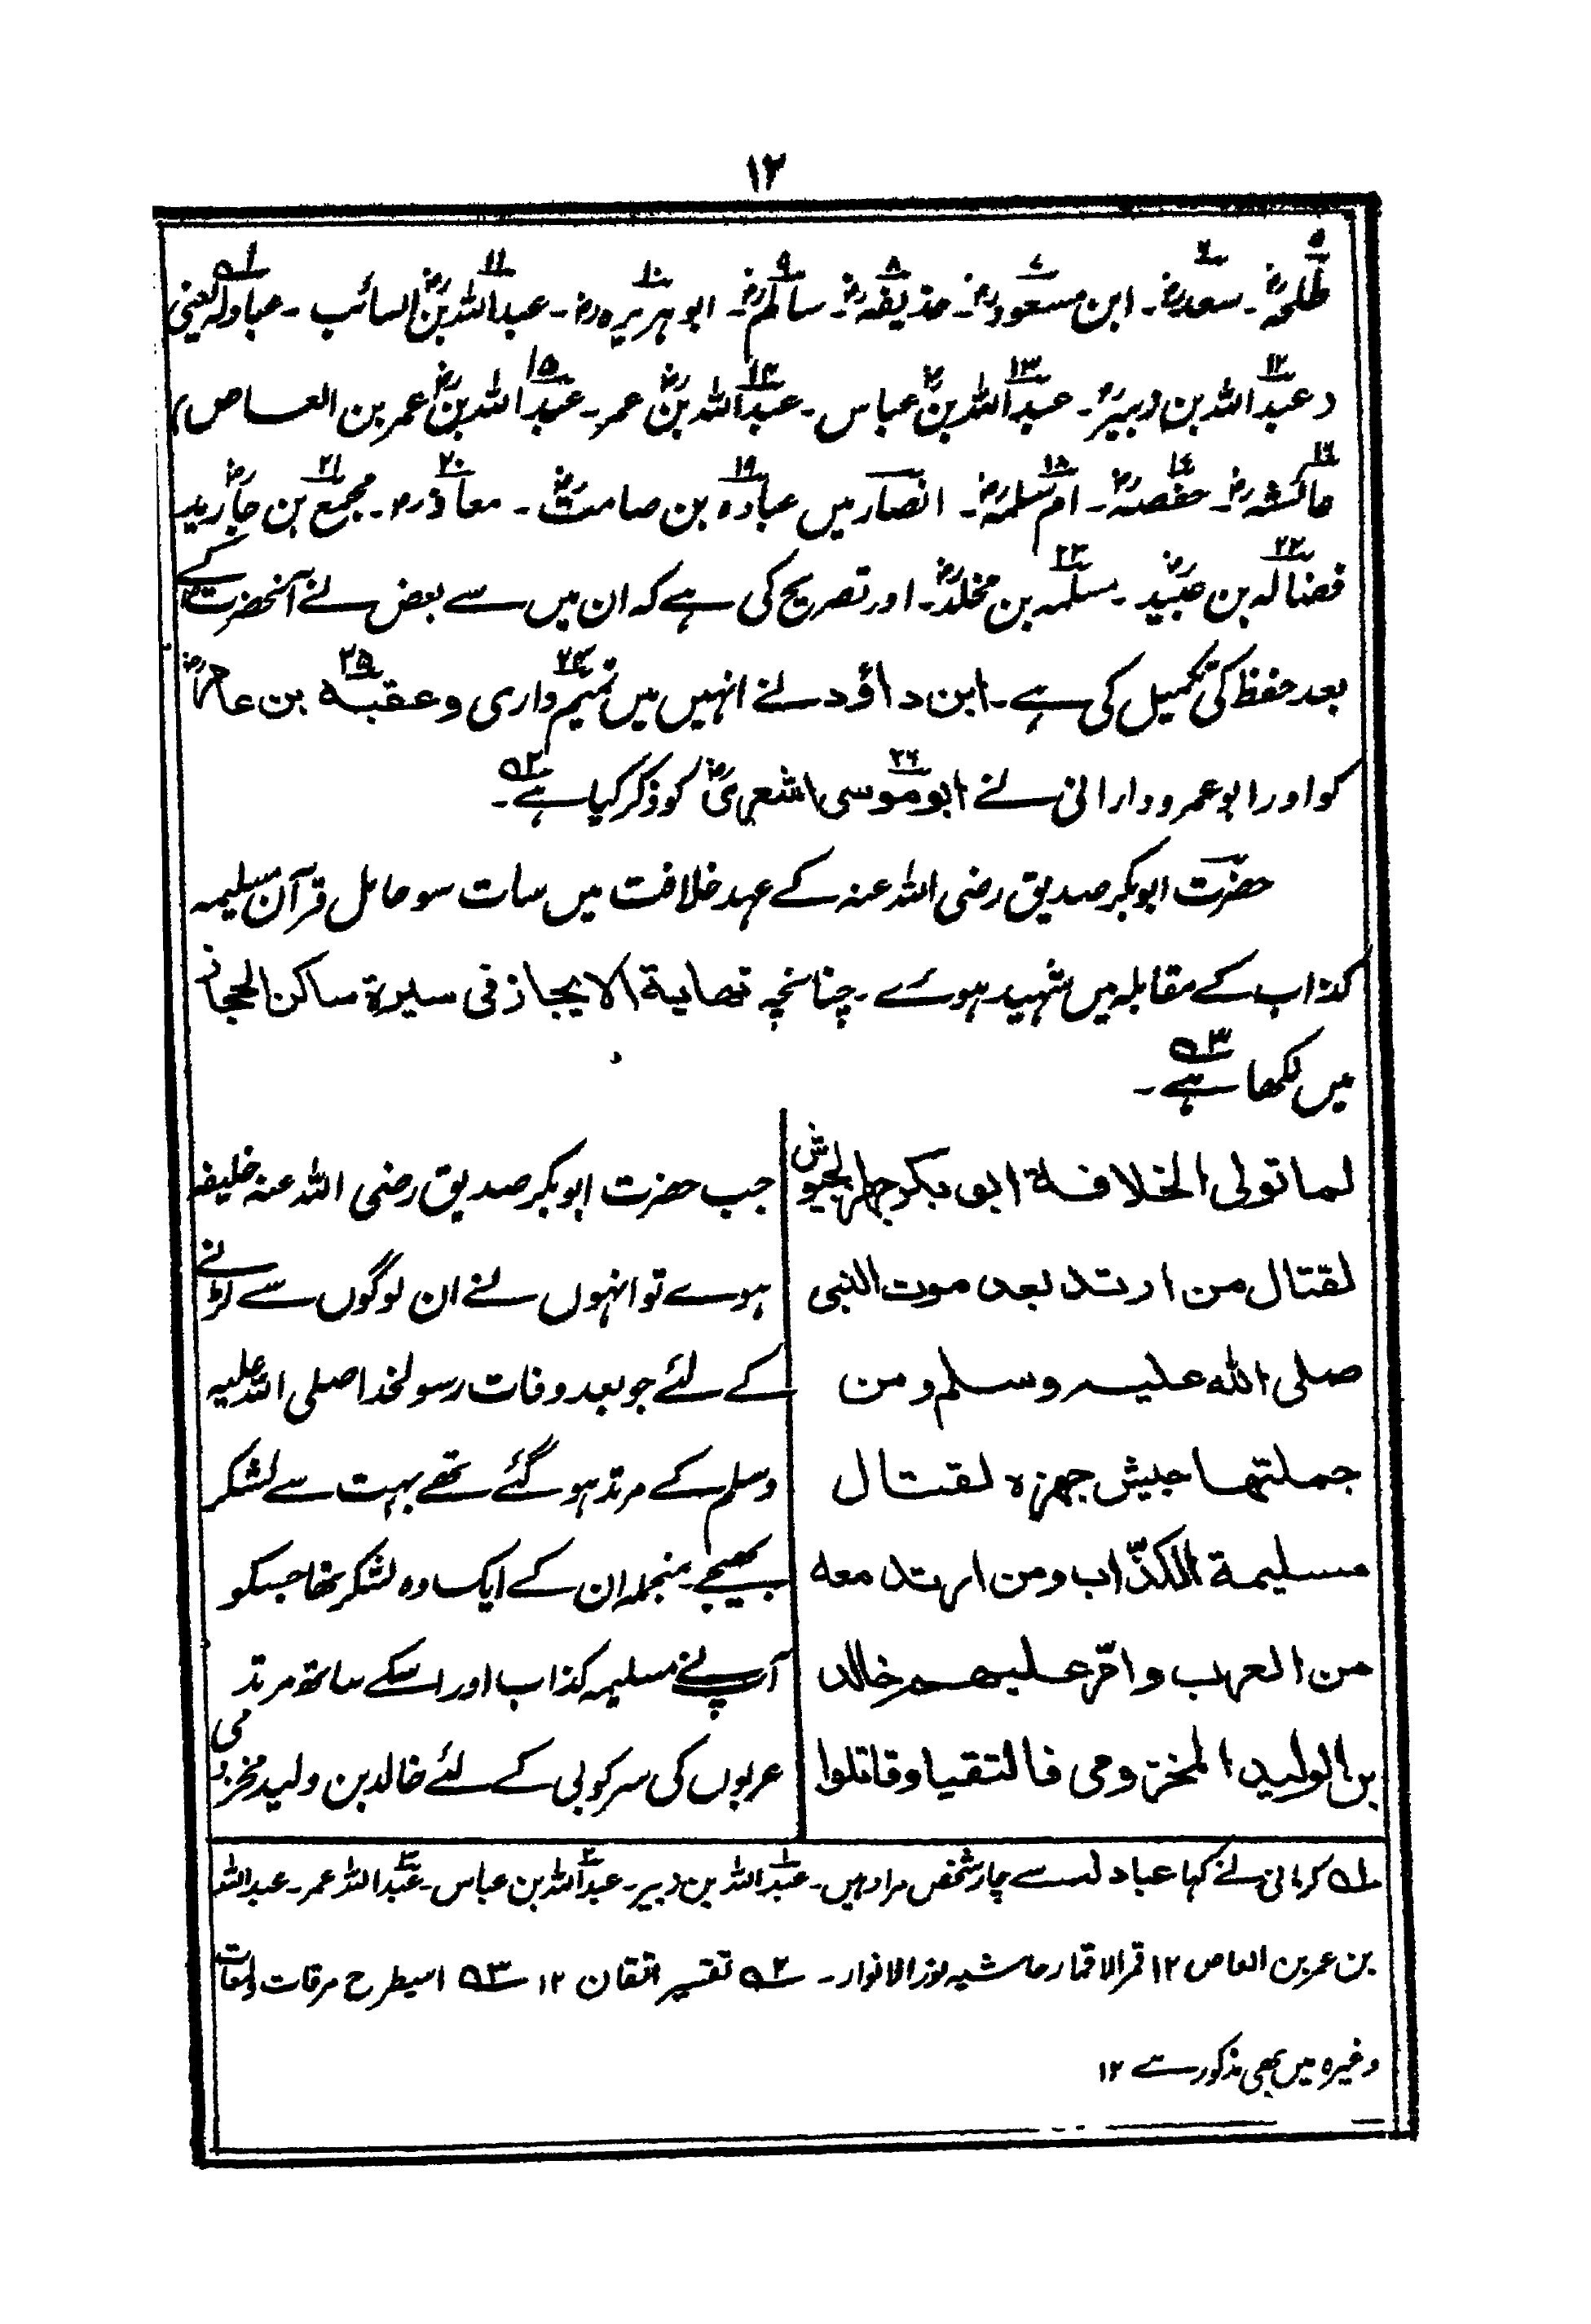 ۱۲
طلحہؓ۔ سعدؓ۔ ابن مسعودؓ۔ حذیفہؓ۔ سالمؓ۔ ابو ہریرہؓ۔ عبداللہ بنؓ السائب۔ عبادلہ یعنی
(عبداللہ بن زبیرؓ۔ عبداللہ بنؓ عباس۔ عبداللہ بنؓ عمر۔ عبداللہ بنؓ عمر بن العاص)
عائشہؓ۔ حفصہؓ۔ ام سلمہؓ۔ انصار میں عبادہ بن صامتؓ۔ معاذؓ۔ مجمع بن جاریہؓ
فضالہ بن عبیدؓ۔ مسلمہ بن مخلدؓ۔ اور تصریح کی ہے کہ ان میں سے بعض نے آنحضرتؐ کے
بعد حفظ کی تکمیل کی ہے۔ ابن داؤد نے انہیں میں تمیم داری و عقبہ بن عامرؓ
کو اور ابو عمرو دارانی نے ابو موسی اشعریؓ کو ذکر کیا ہے۔ ۲؎
حضرت ابو بکر صدیق رضی اللہ عنہ کے عہد خلافت میں سات سو حامل قرآن مسلیمہ
کذاب کے مقابلہ میں شہید ہوئے۔ چنانچہ نهایة الایجاز فی سیرة ساکن الحجاز
میں لکھا ہے۔ ۳؎
لما تولی الخلافة ابو بکر جهز الجیوش
لقتال من ارتد بعد موت النبی
صلی الله علیه وسلم ومن
جملتها جیش جهزه لقتال
مسلیمة الکذّاب ومن ارتد معه
من العرب وامّر علیهم خالد
بن الولید المخزومی فالتقیا وقاتلوا
جب حضرت ابو بکر صدیق رضی اللہ عنہ خلیفہ
ہوے تو انہوں نے ان لوگوں سے لڑنے
کے لئے جو بعد وفات رسولخدا صلی اللہ علیہ
وسلم کے مرتد ہو گئے تھے بہت سے لشکر
بھیجے۔ منجملہ ان کے ایک وہ لشکر تھا جسکو
آپ نے مسلیمہ کذاب اور اسکے ساتھ مرتد
عربوں کی سرکوبی کے لئے خالد بن ولید مخزومی
۱؎ کرمانی نے کہا عبادلہ سے چار شخص مراد ہیں۔ عبداللہ بن زبیر۔ عبداللہ بن عباس۔ عبداللہ عمر۔ عبداللہ
بن عمر بن العاص ۱۲ قمر الاقمار حاشیہ نور الانوار۔ ۲؎ تفسیر اتقان ۱۲ ۳؎ اسیطرح مرقات ولمعات
وغیرہ میں بھی مذکور ہے ۱۲